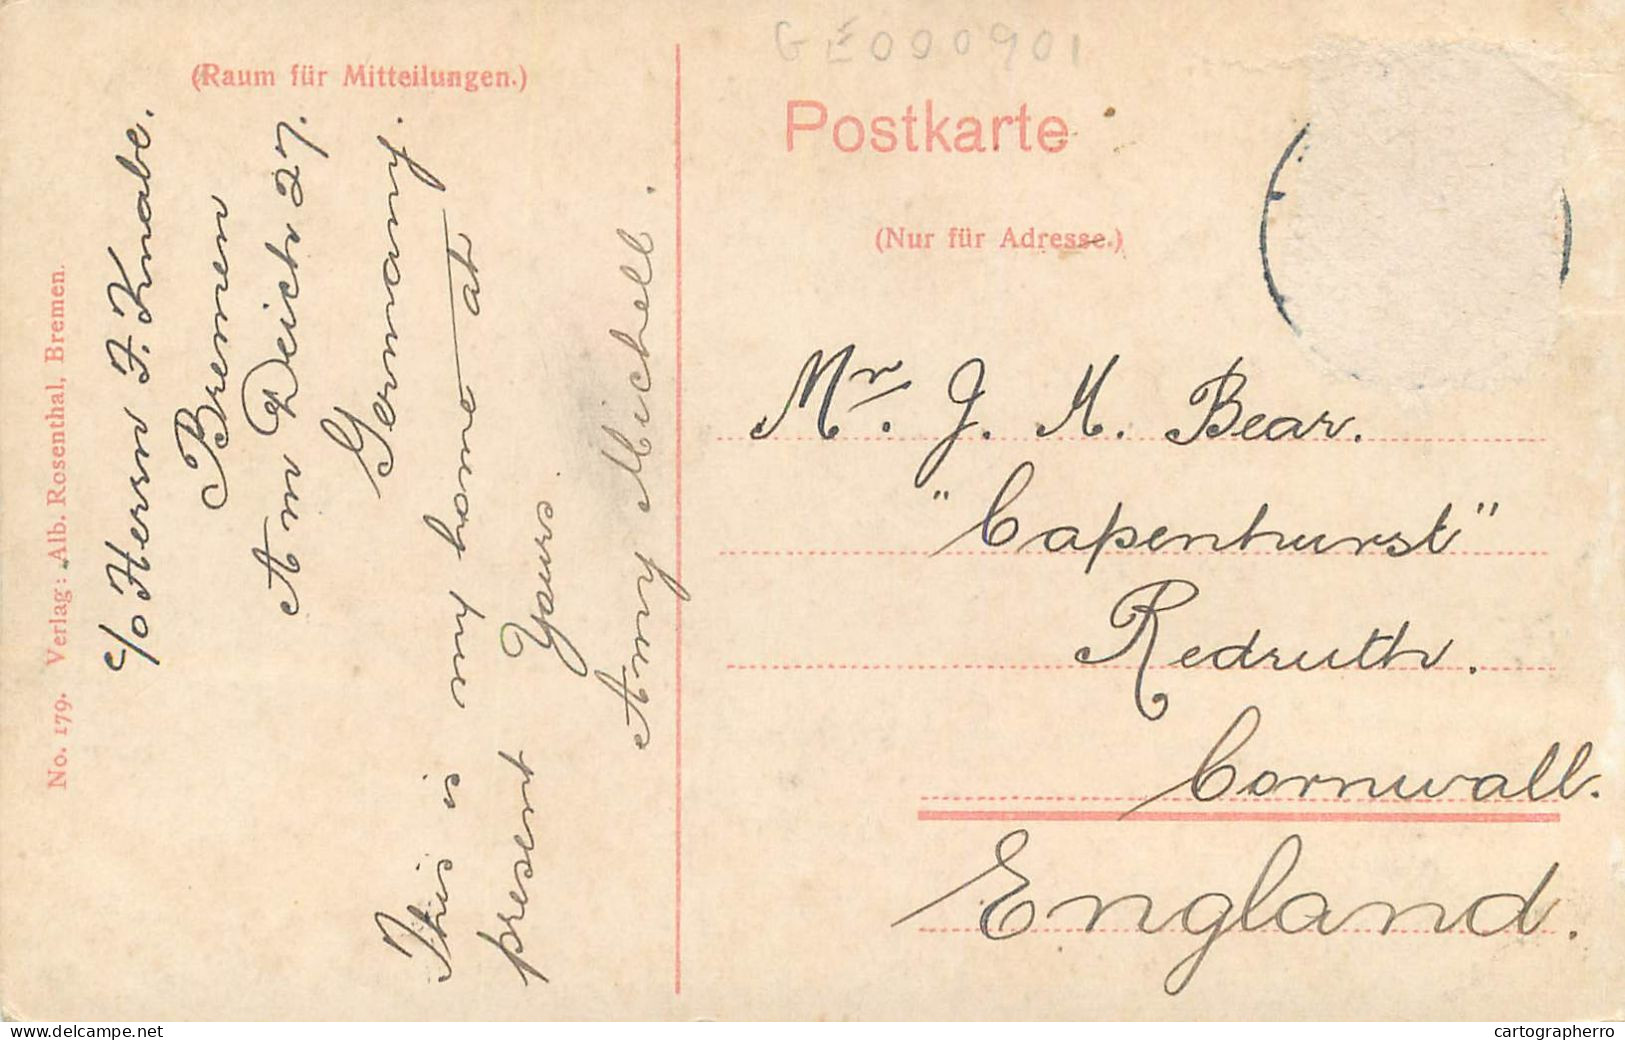 GE000901
(Raum für Mitteilungen.)
c/o Herrn F. Knabe.
Bremen
Am Deich 27.
Germany.
This is my home at
present
Yours
Amy Michell.
No. 179. Verlag: Alb. Rosenthal, Bremen.
Postkarte
(Nur für Adresse.)
Mr. J. M. Bear.
"Capenhurst"
Redruth.
Cornwall.
England.
www.delcampe.net
cartographerro